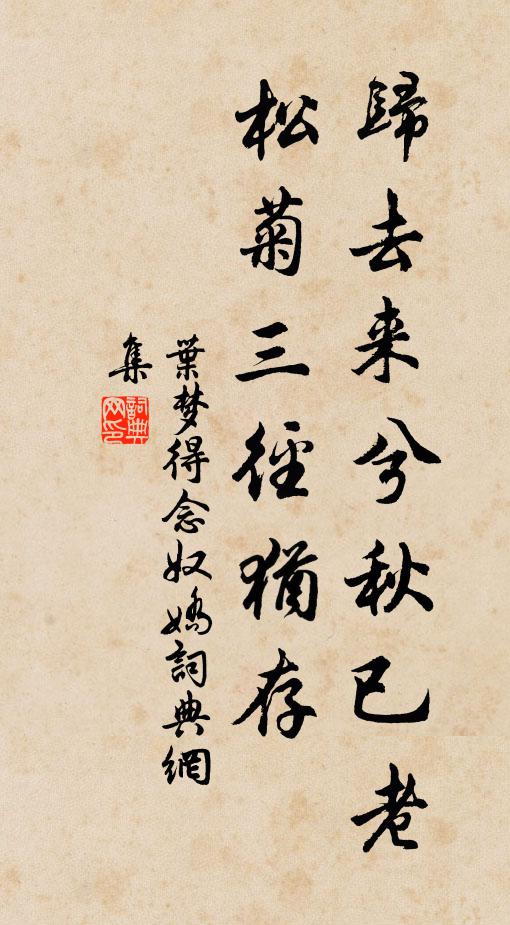 歸去来兮秋已老
松菊三徑猶存
葉梦得念奴嬌詞典網
集
詞典网印